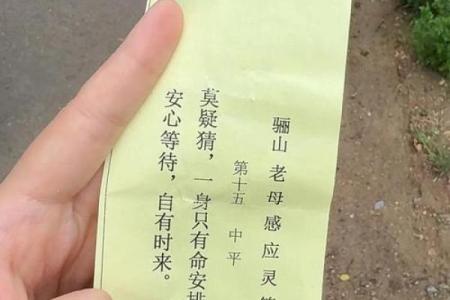 骊山老母感应灵
第十五 中平
莫疑猜，一身只有命安排
安心等待，自有时来。